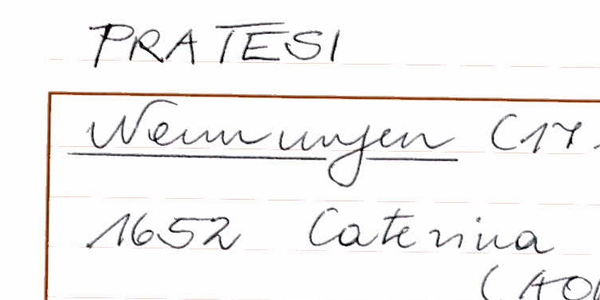 PRATESI
Nennungen (17
1652 Caterina
(AOU